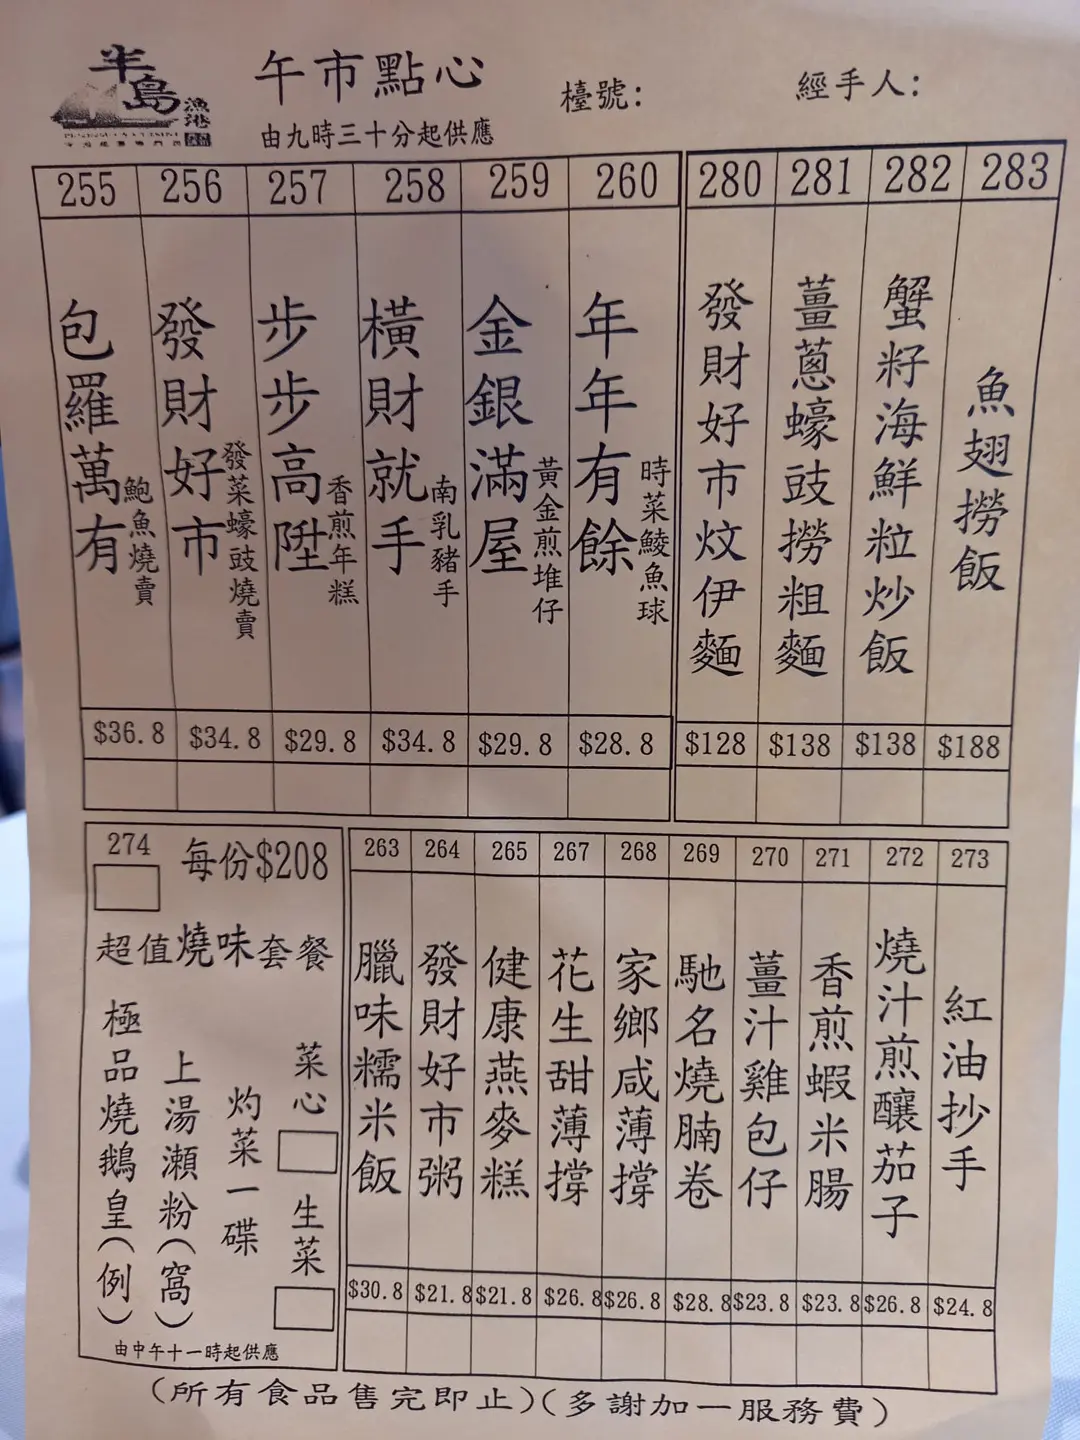 半島
漁港
午市點心
由九時三十分起供應
檯號:
經手人:
255
包羅萬有
鮑魚燒賣
$36.8
256
發財好市
發菜蠔豉燒賣
$34.8
257
步步高陞
香煎年糕
$29.8
258
橫財就手
南乳豬手
$34.8
259
金銀滿屋
黃金煎堆仔
$29.8
260
年年有餘
時菜鯪魚球
$28.8
280
發財好市炆伊麵
$128
281
薑蔥蠔豉撈粗麵
$138
282
蟹籽海鮮粒炒飯
$138
283
魚翅撈飯
$188
274
每份$208
超值燒味套餐
極品燒鵝皇(例)
上湯瀨粉(窩)
灼菜一碟
菜心
生菜
由中午十一時起供應
263
臘味糯米飯
$30.8
264
發財好市粥
$21.8
265
健康燕麥糕
$21.8
267
花生甜薄撐
$26.8
268
家鄉咸薄撐
$26.8
269
馳名燒腩卷
$28.8
270
薑汁雞包仔
$23.8
271
香煎蝦米腸
$23.8
272
燒汁煎釀茄子
$26.8
273
紅油抄手
$24.8
(所有食品售完即止)(多謝加一服務費)